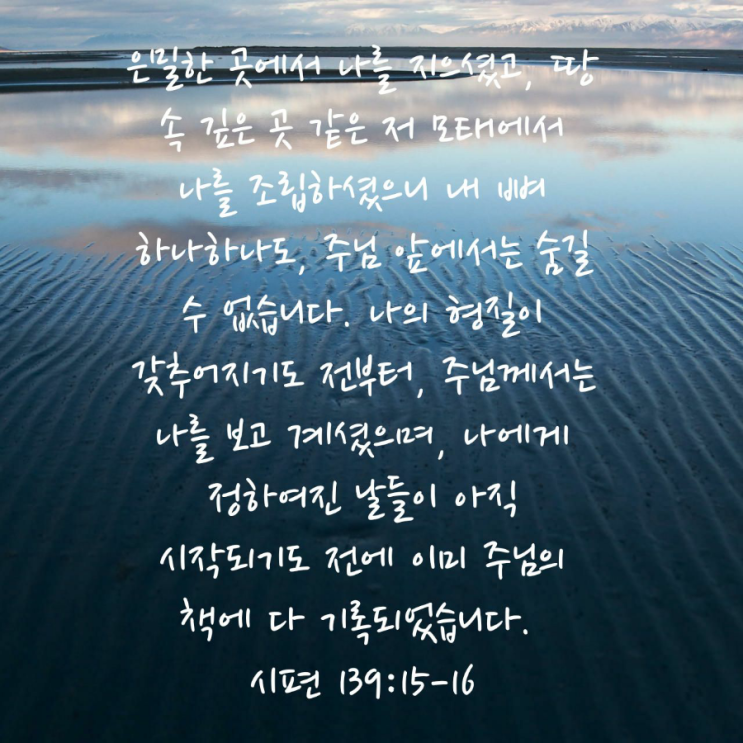 은밀한 곳에서 나를 지으셨고, 땅
속 깊은 곳 같은 저 모태에서
나를 조립하셨으니 내 뼈
하나하나도, 주님 앞에서는 숨길
수 없습니다. 나의 형질이
갖추어지기도 전부터, 주님께서는
나를 보고 계셨으며, 나에게
정하여진 날들이 아직
시작되기도 전에 이미 주님의
책에 다 기록되었습니다.
시편 139:15-16